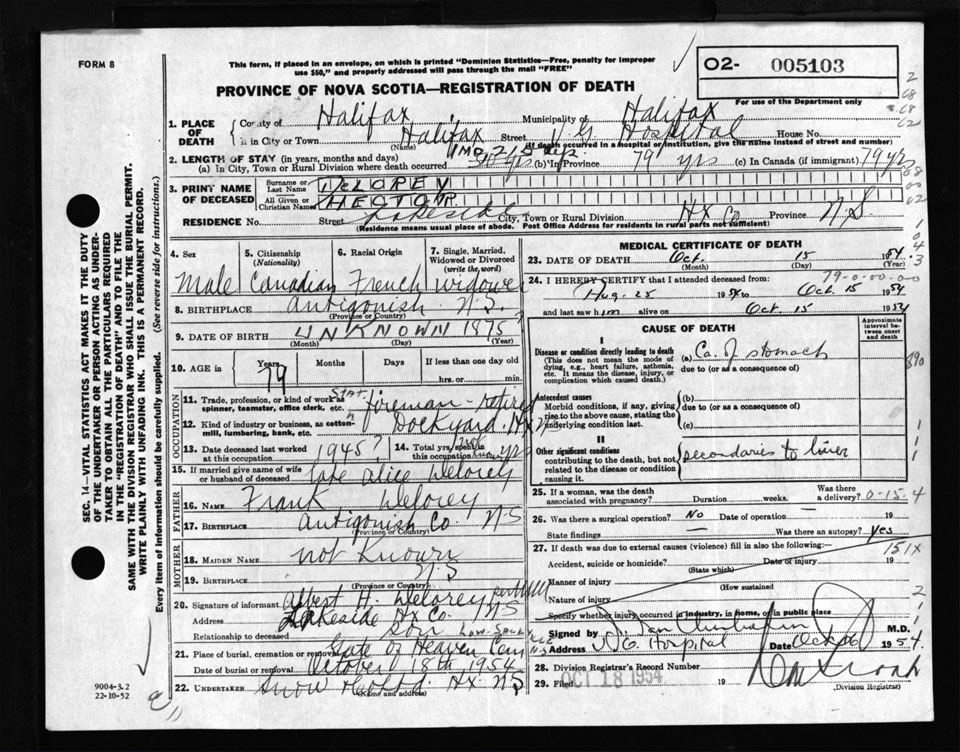 FORM 8
This form, if placed in an envelope, on which is printed "Dominion Statistics—Free, penalty for improper
use $50," and properly addressed will pass through the mail "FREE"
O2- 005103
For use of the Department only
PROVINCE OF NOVA SCOTIA—REGISTRATION OF DEATH
1. PLACE OF DEATH
County of Halifax, Municipality of Halifax
If in City or Town Halifax Street V.G. Hospital House No.
(Name) (If death occurred in a hospital or institution, give the name instead of street and number)
2. LENGTH OF STAY (in years, months and days)
(a) In City, Town or Rural Division where death occurred 1 Mo. 21 5 (b) In Province 79 yrs (c) In Canada (if immigrant) 79 yrs
3. PRINT NAME OF DECEASED
Surname or Last Name DELOREY
All Given or Christian Names HECTOR
RESIDENCE No. Street Lakeside City, Town or Rural Division Hx Co Province N.S
(Residence means usual place of abode. Post Office Address for residents in rural parts not sufficient)
4. Sex
Male
5. Citizenship (Nationality)
Canadian
6. Racial Origin
French
7. Single, Married, Widowed or Divorced (write the word)
Widower
8. BIRTHPLACE Antigonish N.S.
(Province or Country)
9. DATE OF BIRTH UNKNOWN 1875
(Month) (Day) (Year)
10. AGE in Years Months Days If less than one day old
79 hrs. or min.
OCCUPATION
11. Trade, profession, or kind of work as spinner, teamster, office clerk, etc. Stat. Fireman - retired
12. Kind of industry or business, as cotton-mill, lumbering, bank, etc. Dockyard Hx NS
13. Date deceased last worked at this occupation 1945? 14. Total yrs. spent in this occupation yrs
15. If married give name of wife or husband of deceased late Alice Delorey
FATHER
16. NAME Frank Delorey
17. BIRTHPLACE Antigonish Co. NS
(Province or Country)
MOTHER
18. MAIDEN NAME not known
19. BIRTHPLACE N.S
(Province or Country)
20. Signature of informant Albert H. Delorey
Address Lakeside Hx Co. NS
Relationship to deceased Son
21. Place of burial, cremation or removal Gate of Heaven Cem
Date of burial or removal October 18th 1954
22. UNDERTAKER Snow Hx NS
(Name and address)
MEDICAL CERTIFICATE OF DEATH
23. DATE OF DEATH Oct. 15 1954
(Month) (Day) (Year)
79-0-00-00
24. I HEREBY CERTIFY that I attended deceased from:
Aug-25 1954 to Oct 15 1954
and last saw him alive on Oct 15 1954
CAUSE OF DEATH
Approximate interval between onset and death
I
Disease or condition directly leading to death (a) Ca. of stomach
(This does not mean the mode of dying, e.g., heart failure, asthenia, etc. It means the disease, injury, or complication which caused death.)
due to (or as a consequence of)
Antecedent causes
Morbid conditions, if any, giving rise to the above cause, stating the underlying condition last.
(b)
due to (or as a consequence of)
(c)
II
Other significant conditions
contributing to the death, but not related to the disease or condition causing it.
secondaries to liver
25. If a woman, was the death associated with pregnancy? Duration weeks. Was there a delivery? 0-15-4
26. Was there a surgical operation? No Date of operation — 19
State findings — Was there an autopsy? Yes
27. If death was due to external causes (violence) fill in also the following:— 151X
Accident, suicide or homicide? Date of injury 19
(State which)
Manner of injury
(How sustained)
Nature of injury
Specify whether injury occurred in industry, in home, or in public place
Signed by M.D.
Address V.G. Hospital Date Oct 16 1954
28. Division Registrar's Record Number
29. Filed OCT 18 1954 19
(Division Registrar)
SEC. 14—VITAL STATISTICS ACT MAKES IT THE DUTY
OF THE UNDERTAKER OR PERSON ACTING AS UNDER-
TAKER TO OBTAIN ALL THE PARTICULARS REQUIRED
IN THE "REGISTRATION OF DEATH" AND TO FILE THE
SAME WITH THE DIVISION REGISTRAR WHO SHALL ISSUE THE BURIAL PERMIT.
WRITE PLAINLY WITH UNFADING INK. THIS IS A PERMANENT RECORD.
Every item of information should be carefully supplied. (See reverse side for instructions.)
9004-3.2
22-10-52